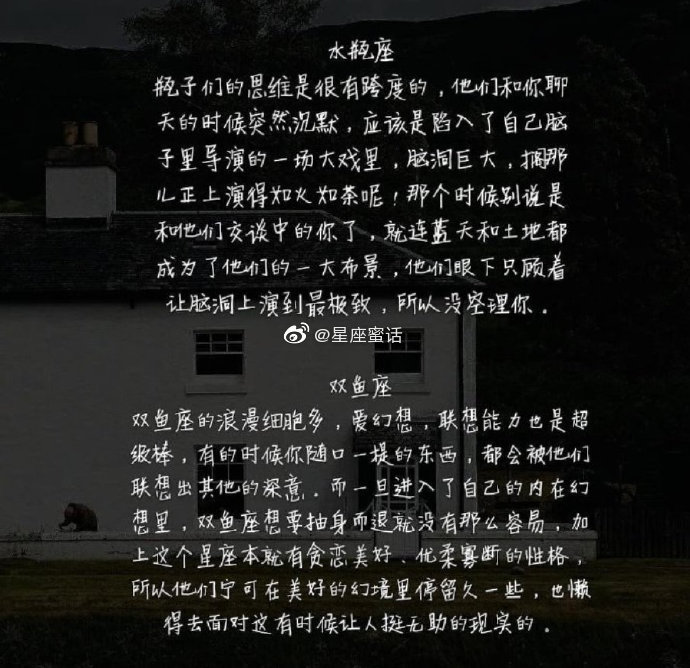 水瓶座
瓶子们的思维是很有跨度的，他们和你聊
天的时候突然沉默，应该是陷入了自己脑
子里导演的一场大戏里，脑洞巨大，搁那
儿正上演得如火如荼呢！那个时候别说是
和他们交谈中的你了，就连蓝天和土地都
成为了他们的一大布景，他们眼下只顾着
让脑洞上演到最极致，所以没空理你．
@星座蜜话
双鱼座
双鱼座的浪漫细胞多，爱幻想，联想能力也是超
级棒，有的时候你随口一提的东西，都会被他们
联想出其他的深意．而一旦进入了自己的内在幻
想里，双鱼座想要抽身而退就没有那么容易，加
上这个星座本就有贪恋美好、优柔寡断的性格，
所以他们宁可在美好的幻境里停留久一些，也懒
得去面对这有时候让人挺无助的现实的．